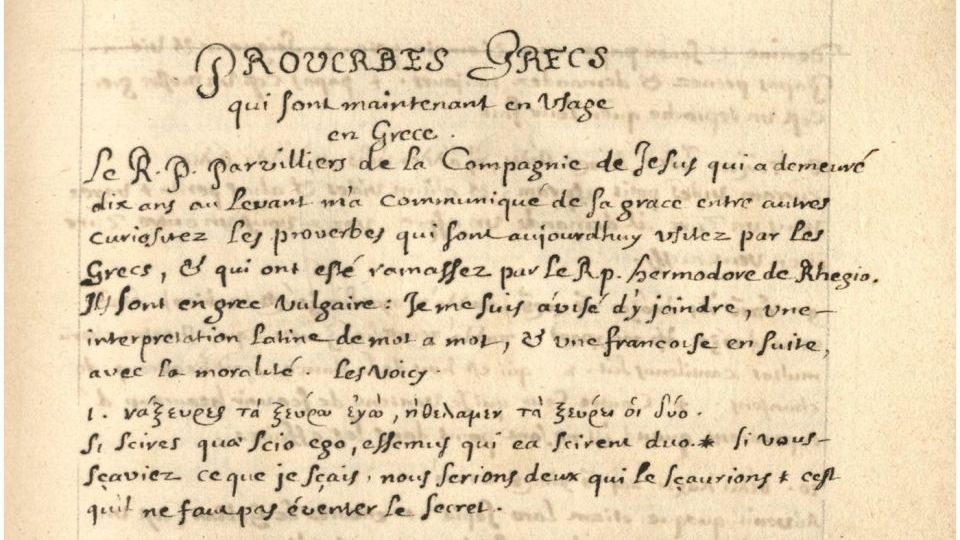 PROVERBES GRECS
qui sont maintenant en Usage
en Grece.
Le R. P. Parvilliers de la Compagnie de Jesus qui a demeuré
dix ans au levant m'a communiqué de sa grace entre autres
curiositez les proverbes qui sont aujourdhuy usitez par les
Grecs, & qui ont esté ramassez par le R p. hermodore de Rhegio.
Ils sont en grec vulgaire: Je me suis avisé d'y joindre, une
interpretation latine de mot a mot, & une francoise en suite,
avec la moralité. les voicy.
1. νάξευρες τά ξεύρω ἐγώ, ἠθέλαμεν τὰ ξεύρει οἱ δύο.
Si scires quæ scio ego, essemus qui ea scirent duo.* si vous
sçaviez ce que je sçais, nous serions deux qui le sçaurions * c'est
qu'il ne faut pas éventer le secret.